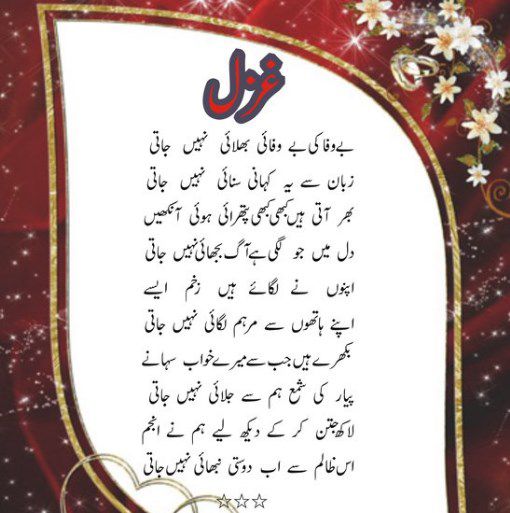 غزل
بے وفا کی بے وفائی بھلائی نہیں جاتی
زبان سے یہ کہانی سنائی نہیں جاتی
بھر آتی ہیں کبھی کبھی پتھرائی ہوئی آنکھیں
دل میں جو لگی ہے آگ بجھائی نہیں جاتی
اپنوں نے لگائے ہیں زخم ایسے
اپنے ہاتھوں سے مرہم لگائی نہیں جاتی
بکھرے ہیں جب سے میرے خواب سہانے
پیار کی شمع ہم سے جلائی نہیں جاتی
لاکھ جتن کر کے دیکھ لیے ہم نے انجم
اس ظالم سے اب دوستی نبھائی نہیں جاتی
☆☆☆